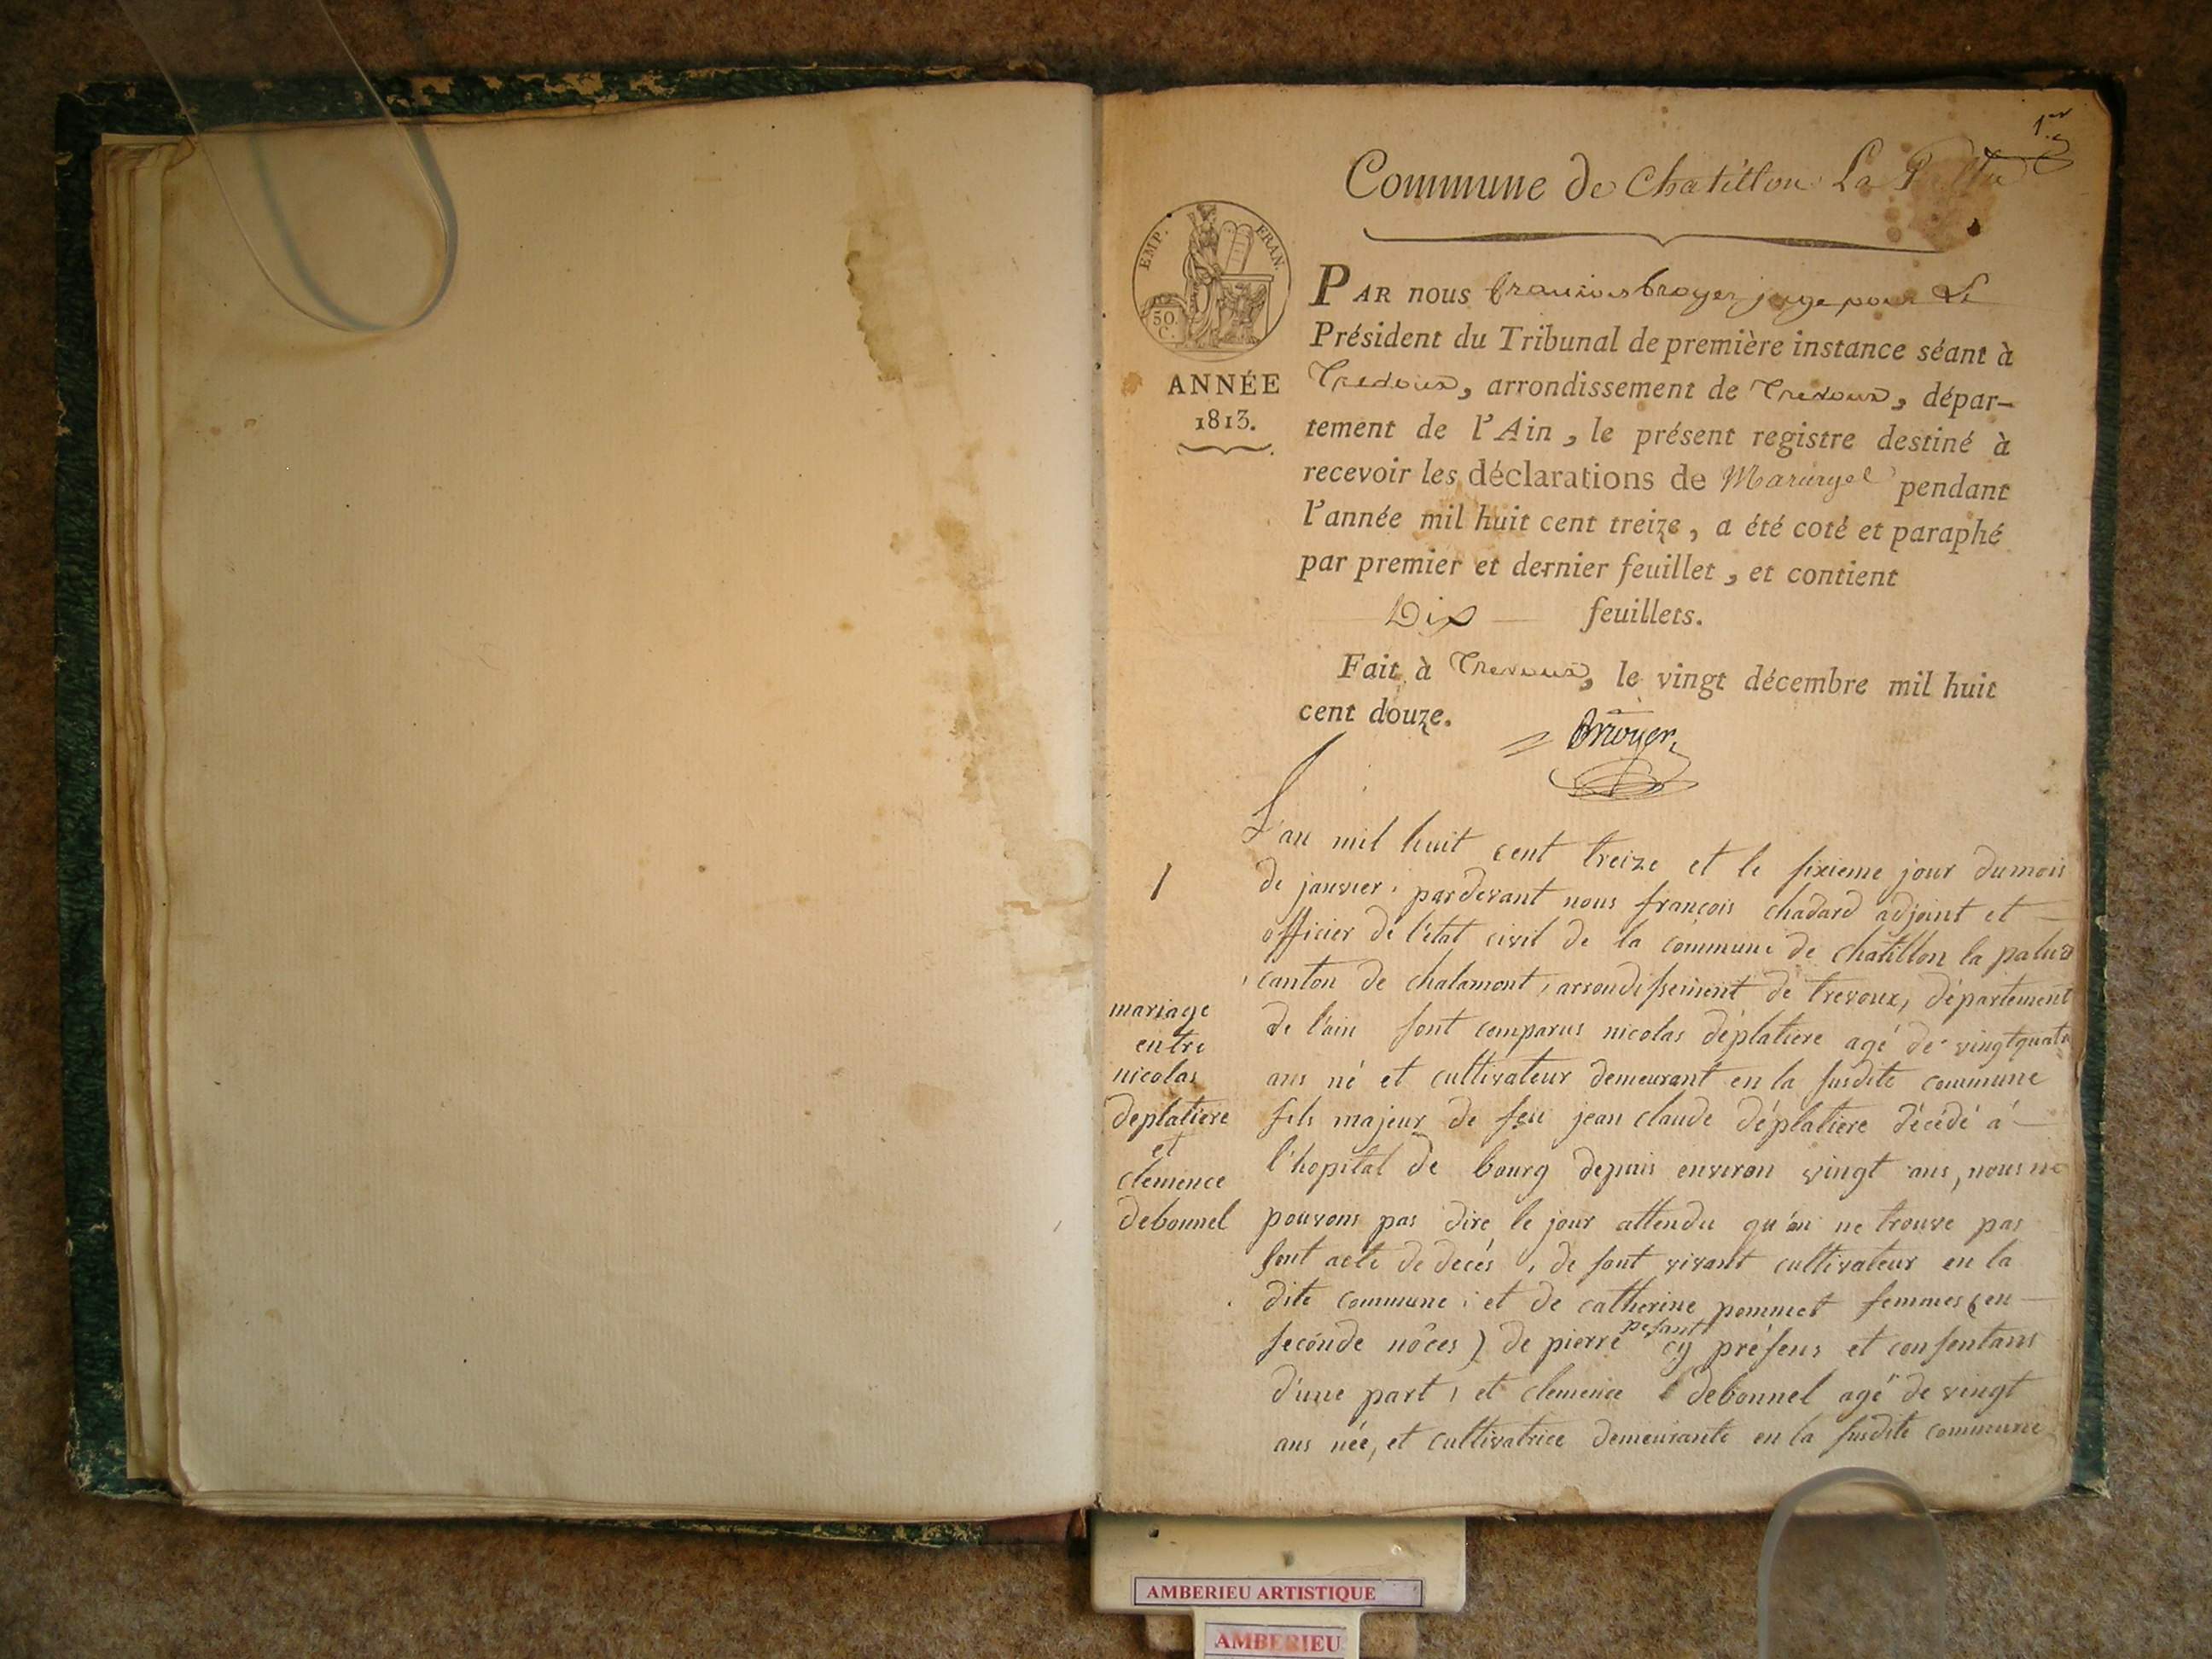 1er
Commune de Chatillon La Pallu
EMP. FRAN.
50.
C.
ANNÉE
1813.
PAR nous francois broyer juge pour Le
Président du Tribunal de première instance séant à
Trevoux, arrondissement de Trevoux, dépar-
tement de l'Ain, le présent registre destiné à
recevoir les déclarations de Mariages pendant
l'année mil huit cent treize, a été coté et paraphé
par premier et dernier feuillet, et contient
Dix feuillets.
Fait à Trevoux, le vingt décembre mil huit
cent douze.
Broyer
1
L'an mil huit cent treize et le sixieme jour du mois
de janvier, pardevant nous françois chadard adjoint et
officier de l'état civil de la commune de chatillon la palud
canton de chalamont, arrondissement de trevoux, département
de l'ain sont comparus nicolas déplatiere agé de vingtquatre
ans né et cultivateur demeurant en la susdite commune
fils majeur de feu jean claude déplatiere décédé á
l'hopital de bourg depuis environ vingt ans, nous ne
pouvons pas dire le jour attendu qu'on ne trouve pas
sont acte de decés, de sont vivant cultivateur en la
dite commune; et de catherine pommet femmes (en
seconde nôces) de pierre pesant cy présens et consentans
d'une part, et clemence debonnel agé de vingt
ans née, et cultivatrice demeurante en la susdite commune
mariage
entre
nicolas
deplatiere
et
clemence
debonnel
AMBERIEU ARTISTIQUE
AMBERIEU